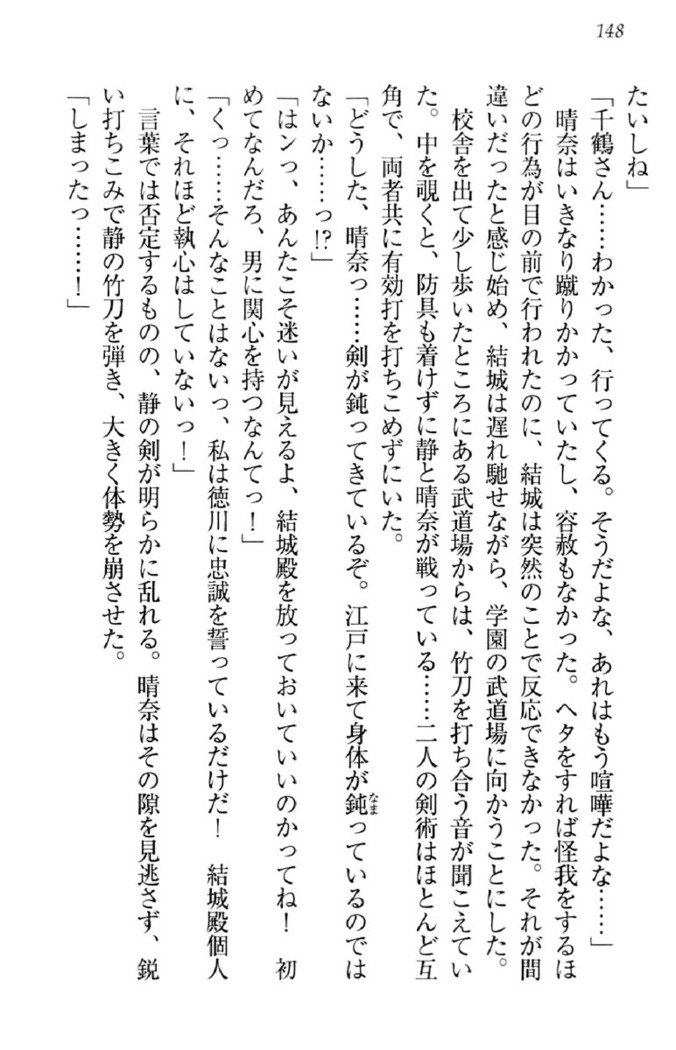 148
たいしね」
「千鶴さん……わかった、行ってくる。そうだよな、あれはもう喧嘩だよな……」
　晴奈はいきなり蹴りかかっていたし、容赦もなかった。ヘタをすれば怪我をするほ
どの行為が目の前で行われたのに、結城は突然のことで反応できなかった。それが間
違いだったと感じ始め、結城は遅れ馳せながら、学園の武道場に向かうことにした。
　校舎を出て少し歩いたところにある武道場からは、竹刀を打ち合う音が聞こえてい
た。中を覗くと、防具も着けずに静と晴奈が戦っている……二人の剣術はほとんど互
角で、両者共に有効打を打ちこめずにいた。
「どうした、晴奈っ……剣が鈍ってきているぞ。江戸に来て身体が鈍なまっているのでは
ないか……っ!?」
「はンっ、あんたこそ迷いが見えるよ、結城殿を放っておいていいのかってね！　初
めてなんだろ、男に関心を持つなんてっ！」
「くっ……そんなことはないっ、私は徳川に忠誠を誓っているだけだ！　結城殿個人
に、それほど執心はしていないっ！」
　言葉では否定するものの、静の剣が明らかに乱れる。晴奈はその隙を見逃さず、鋭
い打ちこみで静の竹刀を弾き、大きく体勢を崩させた。
「しまったっ……！」